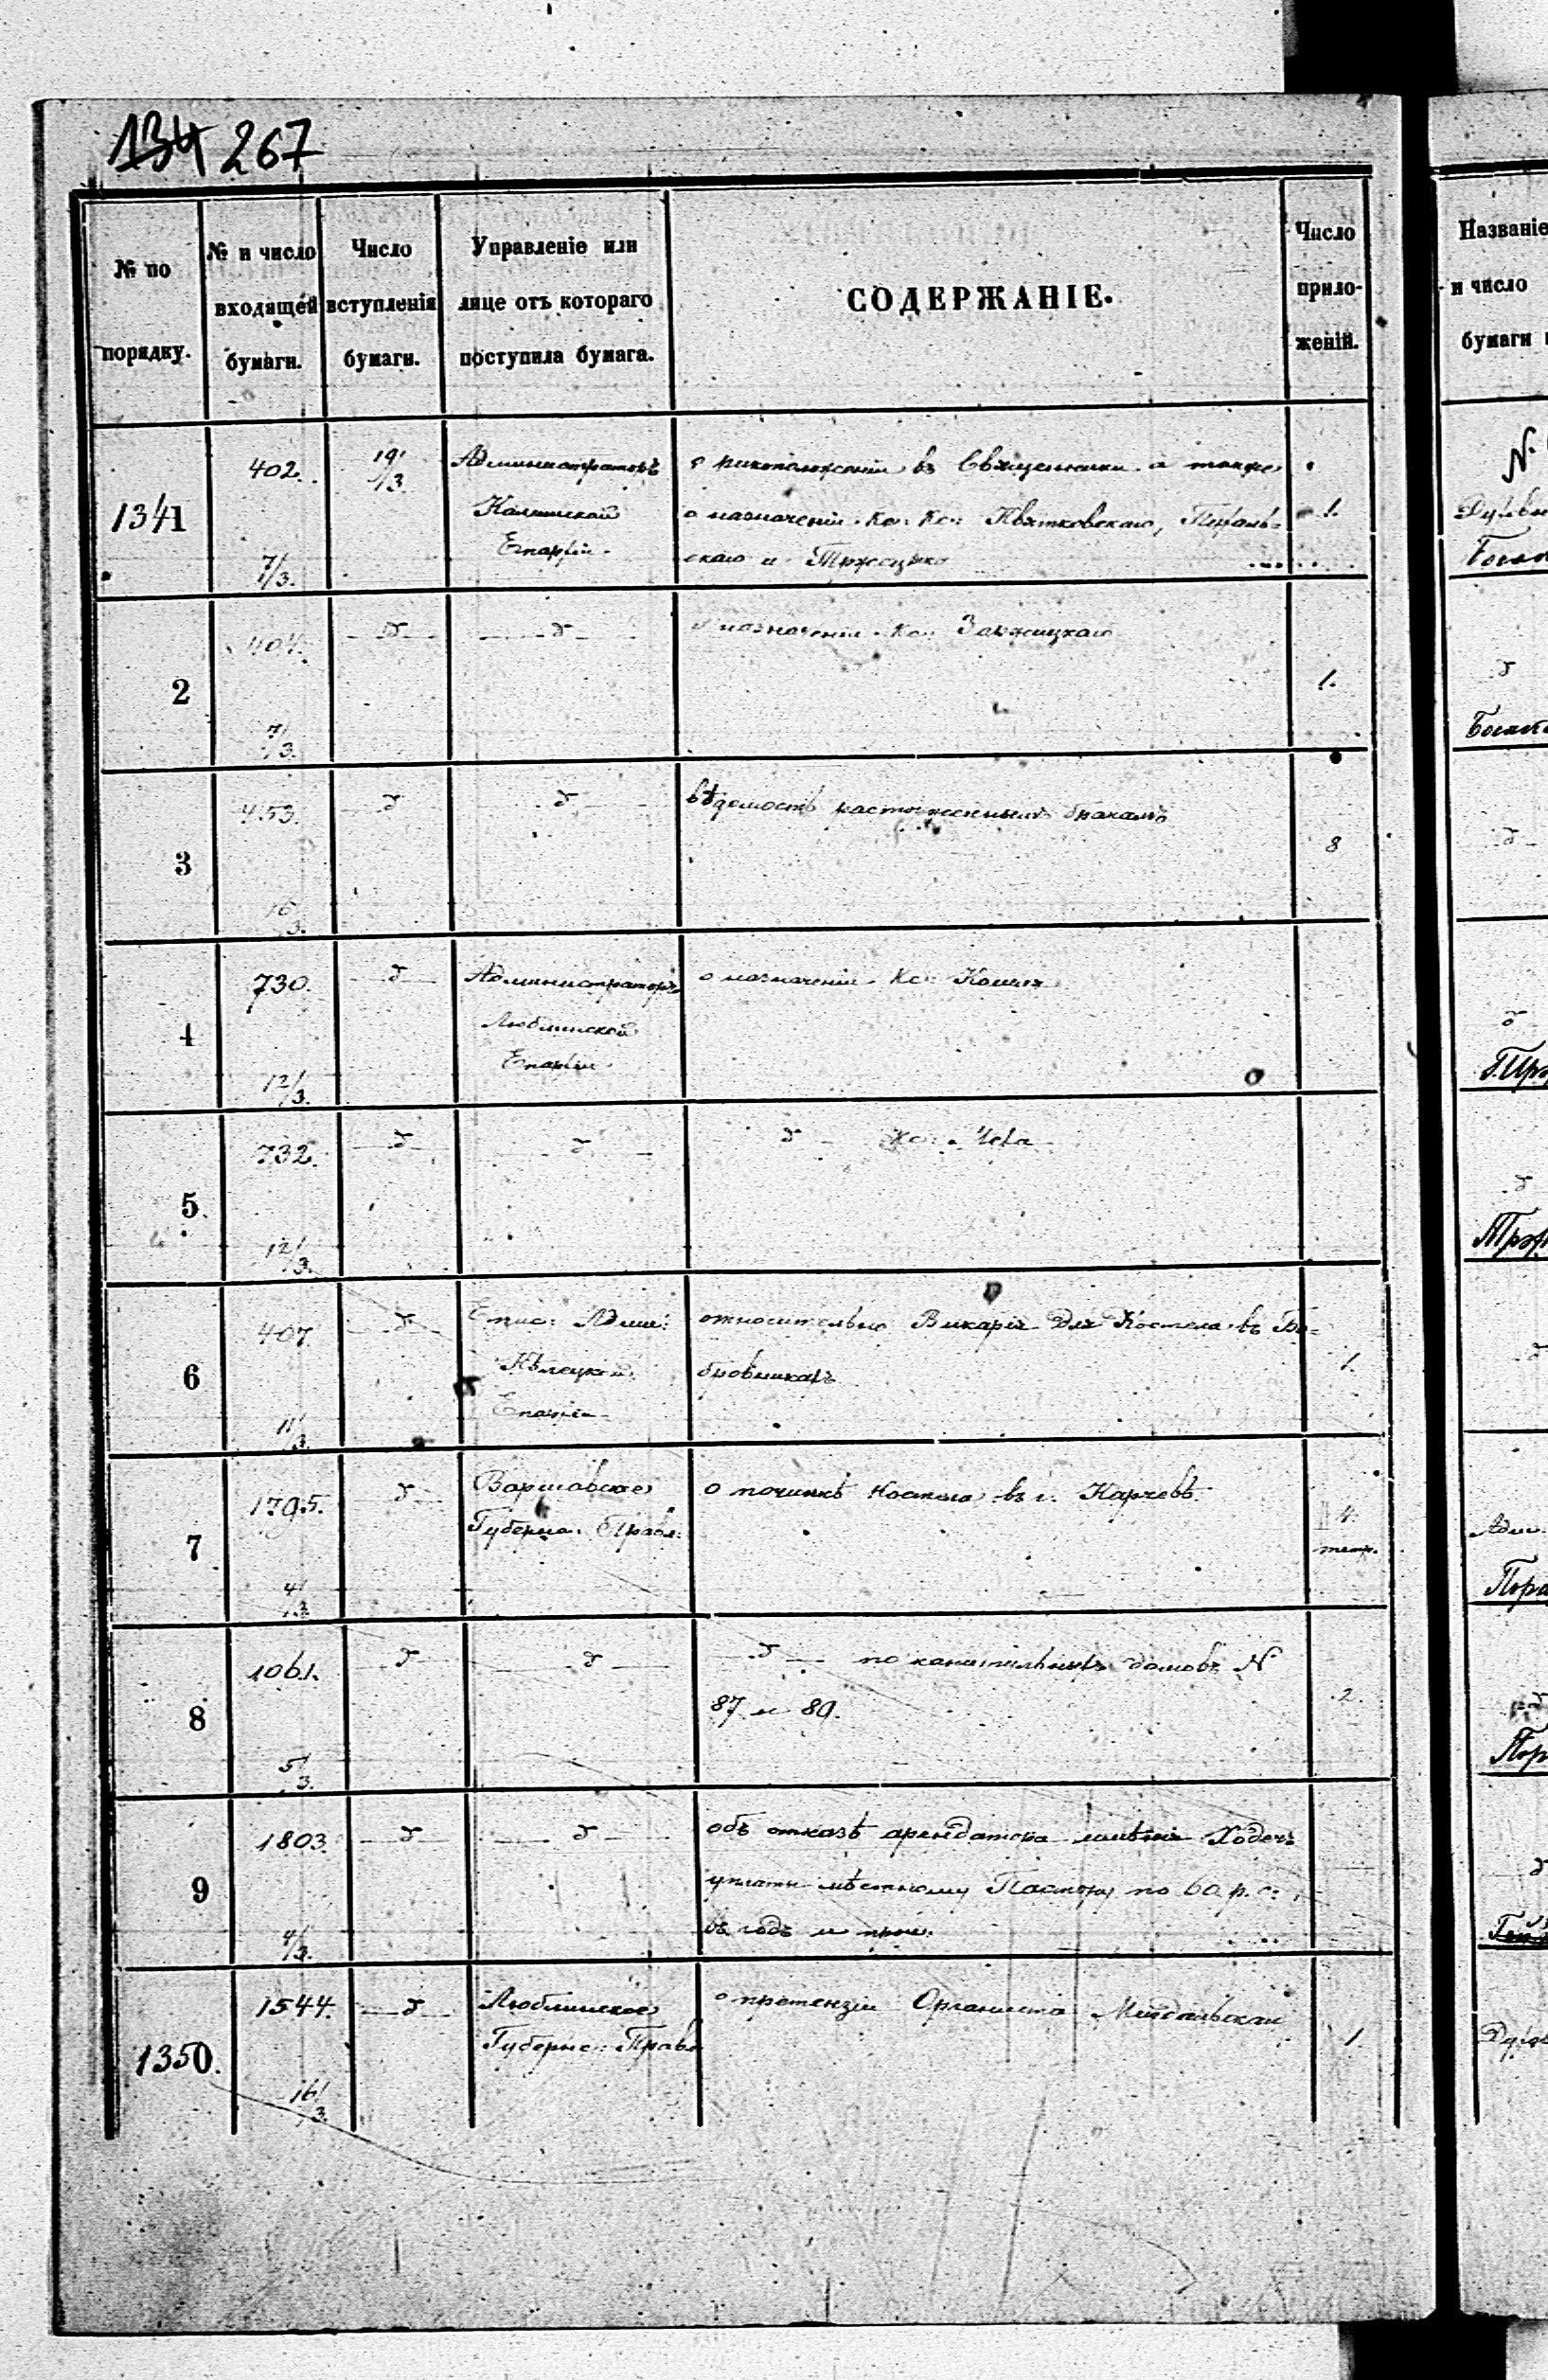 134 267
№ по порядку.
№ и число входящей бумаги.
Число вступленія бумаги.
Управленіе или лице отъ котораго поступила бумага.
СОДЕРЖАНІЕ.
Число приложеній.
Названіе
и число
бумаги
1341
402.
7/3.
19/3.
Администраторъ
Калишской
Епархіи
о рукоположеніи въ Священники а также
о назначеніи Кс: Кс: Квятковскаго,
скаго и
1.
2
404.
7/3.
о назначеніи Кс:
1.
3
453.
вѣдомость расторженнымъ бракамъ
8
4
730.
12/3.
Администраторъ
Люблинской
Епархіи
о назначеніи Кс:
5.
732.
12/3.
Кс:
6
407
11/3.
Епис: Адми:
Кѣлецкой
Епархіи
относительно Викарія для Костела въ Бо-
бровникахъ
1.
7
1795.
4/3.
Варшавское
Губерн: Правл:
о починкѣ Костела въ г. Карчевѣ.
8
1061.
5/3.
по домовъ N
87 и 89.
2.
9
1803.
4/3.
объ отказѣ арендатора имѣнія Ходечъ
уплаты мѣстному Пастору по 60 р. с:
въ годъ и проч.
1350.
1544.
16/3.
Люблинское
Губернс: Правл
о претензіи Органиста
1.